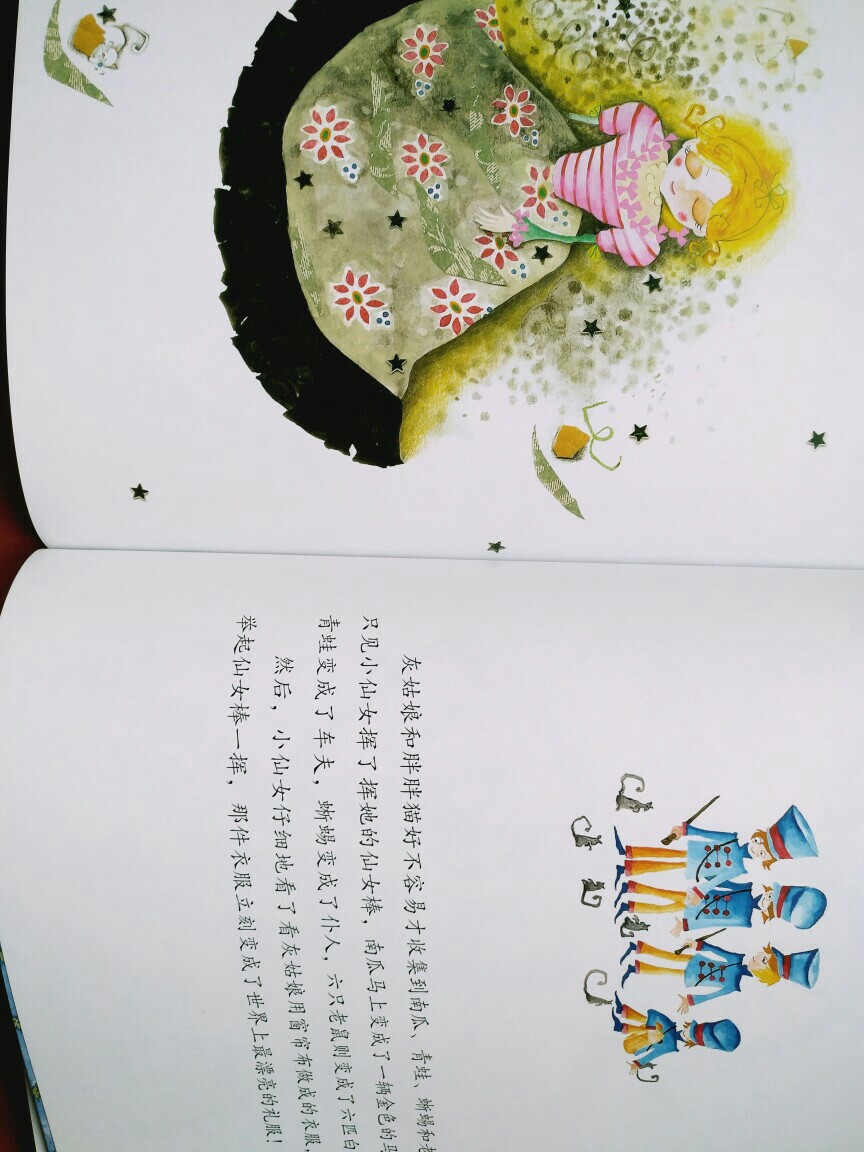 灰姑娘和胖胖猫好不容易才收集到南瓜、青蛙、蜥蜴和老
只见小仙女挥了挥她的仙女棒，南瓜马上变成了一辆金色的马
青蛙变成了车夫，蜥蜴变成了仆人，六只老鼠则变成了六匹白
然后，小仙女仔细地看了看灰姑娘用窗帘布做成的衣服，
举起仙女棒一挥，那件衣服立刻变成了世界上最漂亮的礼服！